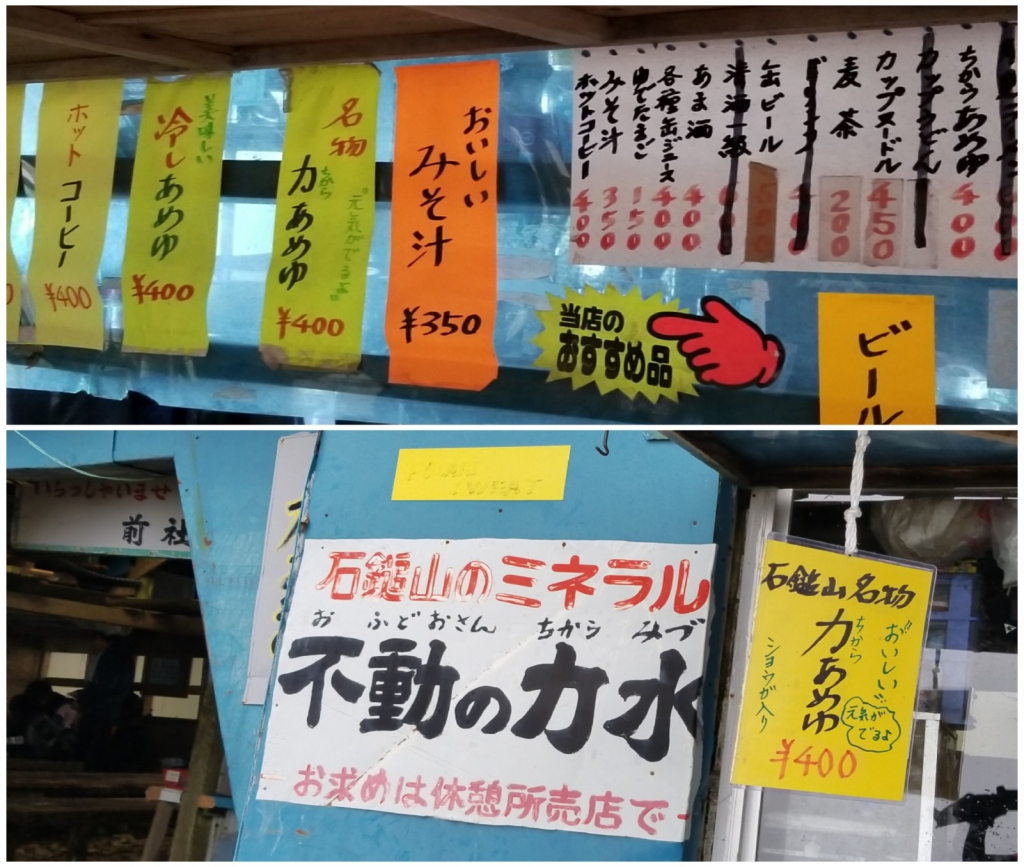 ホットコーヒー
¥400
美味しい
冷しあめゆ
¥400
名物
力あめゆ
ちから
元気がでるよ
¥400
おいしい
みそ汁
¥350
当店の
おすすめ品
ちからあめゆ 400
カップうどん
カップヌードル 450
麦茶 200
缶ビール 500
清酒一級
あま酒 400
各種缶ジュース 400
ゆでたまごン 150
みそ汁 350
ホットコーヒー 400
ビール
いらっしゃいませ
前社
石鎚山のミネラル
お ふどおさん ちから みづ
不動の力水
お求めは休憩所売店で
石鎚山名物
おいしい!!
力あめゆ
ちから
ショウガ入り
元気が
でるよ
¥400